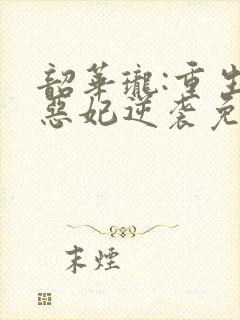 韶華瓏:重生
惡妃逆袭免
末煙